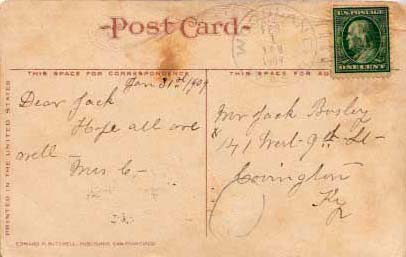 Post Card
U.S. POSTAGE
ONE CENT
THIS SPACE FOR CORRESPONDENCE
THIS SPACE FOR
Jan 31st 1909
Dear Jack
Hope all are
well -
Mrs C -
Mr Jack Bosley
141 West 9th St -
Covington
Ky
PRINTED IN THE UNITED STATES
EDWARD H. MITCHELL, PUBLISHER, SAN FRANCISCO